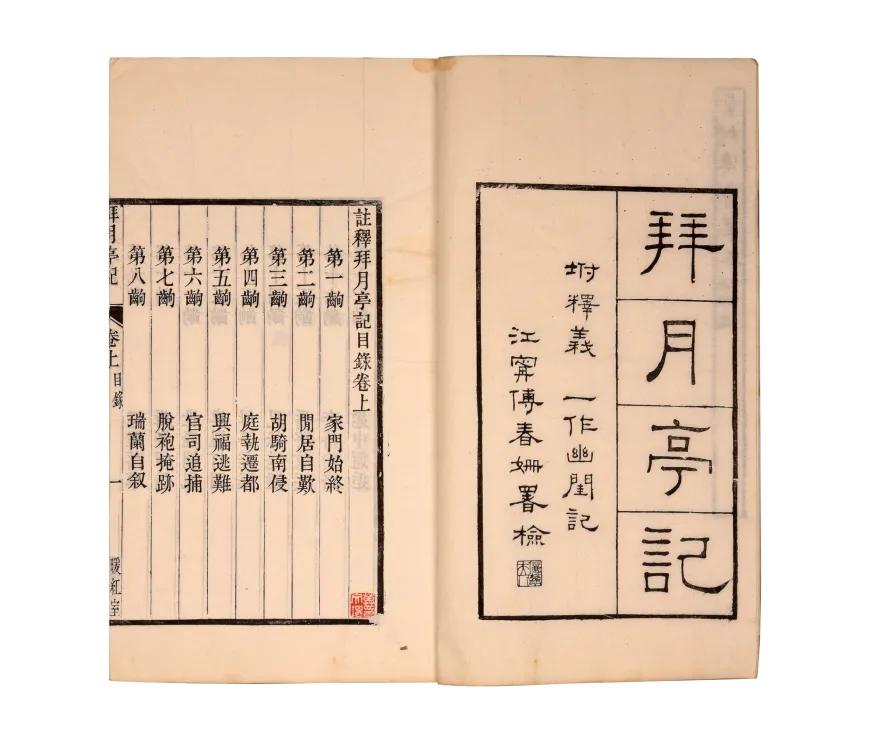 拜月亭記
坿釋義 一作幽閨記
江甯傅春姍署檢
註釋拜月亭記目錄卷上
第一齣 家門始終
第二齣 閒居自歎
第三齣 胡騎南侵
第四齣 庭執遷都
第五齣 興福逃難
第六齣 官司追捕
第七齣 脫袍掩跡
第八齣 瑞蘭自叙
拜月亭記 卷上目錄 一 暖紅室